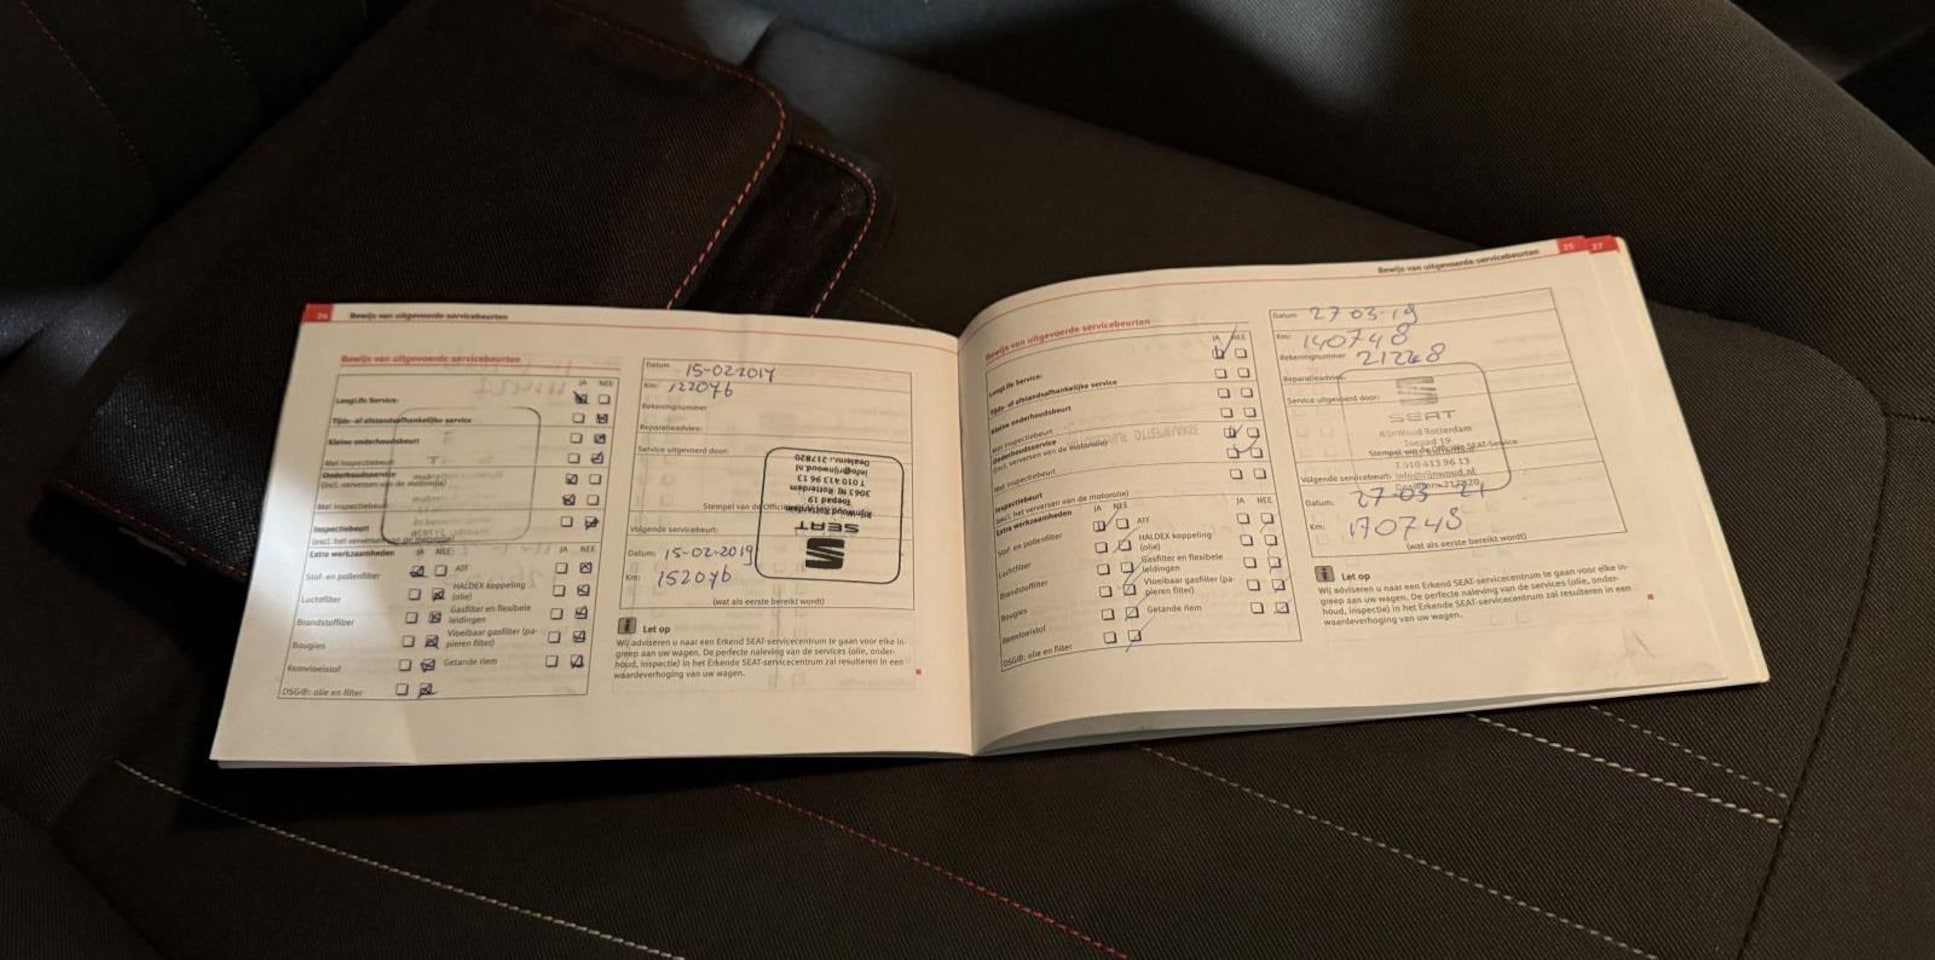 24 Bewijs van uitgevoerde servicebeurten
Bewijs van uitgevoerde servicebeurten
JA NEE
LongLife Service:
Tijds- of afstandsafhankelijke service
Kleine onderhoudsbeurt
Met inspectiebeurt
Onderhoudsservice
(incl. verversen van de motorolie)
Met inspectiebeurt
Inspectiebeurt
(excl. het verversen van de motorolie)
Extra werkzaamheden JA NEE JA NEE
Stof- en pollenfilter
ATF
Luchtfilter
HALDEX koppeling
(olie)
Brandstoffilter
Gasfilter en flexibele
leidingen
Bougies
Vloeibaar gasfilter (pa-
pieren filter)
Remvloeistof
Getande riem
DSG®: olie en filter
Datum 15-02-2017
Km: 122076
Rekeningnummer
Reparatieadvies:
Service uitgevoerd door:
Stempel van de
SEAT
RijnWoud Rotterdam
Toepad 19
3063 NJ Rotterdam
T 010 413 96 13
info@rijnwoud.nl
Dealernr. 317820
Volgende servicebeurt:
Datum: 15-02-2019
Km: 152076
(wat als eerste bereikt wordt)
Let op
Wij adviseren u naar een Erkend SEAT-servicecentrum te gaan voor elke in-
greep aan uw wagen. De perfecte naleving van de services (olie, onder-
houd, inspectie) in het Erkende SEAT-servicecentrum zal resulteren in een
waardeverhoging van uw wagen.
Bewijs van uitgevoerde servicebeurten 25 27
Bewijs van uitgevoerde servicebeurten
JA NEE
LongLife Service:
Tijds- of afstandsafhankelijke service
Kleine onderhoudsbeurt
Met inspectiebeurt
Onderhoudsservice
(incl. verversen van de motorolie)
Met inspectiebeurt
Inspectiebeurt
(excl. het verversen van de motorolie)
Extra werkzaamheden JA NEE JA NEE
Stof- en pollenfilter
ATF
Luchtfilter
HALDEX koppeling
(olie)
Brandstoffilter
Gasfilter en flexibele
leidingen
Bougies
Vloeibaar gasfilter (pa-
pieren filter)
Remvloeistof
Getande riem
DSG®: olie en filter
Datum 27 03-19
Km: 140748
Rekeningnummer 21248
Reparatieadvies:
Service uitgevoerd door:
SEAT
RijnWoud Rotterdam
Toepad 19
Stempel van de Officiële SEAT-Service
T 010 413 96 13
Volgende servicebeurt: info@rijnwoud.nl
Datum: 27-03-21
Km: 170748
(wat als eerste bereikt wordt)
Let op
Wij adviseren u naar een Erkend SEAT-servicecentrum te gaan voor elke in-
greep aan uw wagen. De perfecte naleving van de services (olie, onder-
houd, inspectie) in het Erkende SEAT-servicecentrum zal resulteren in een
waardeverhoging van uw wagen.